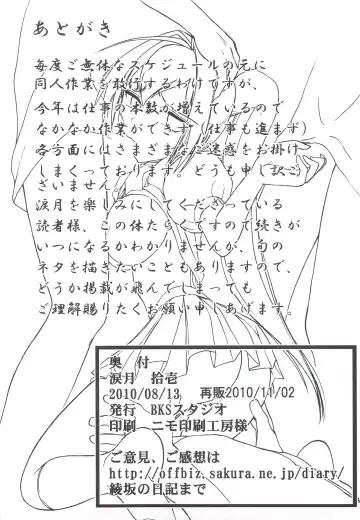 あとがき
毎度ご無体なスケジュールの元に
同人作業を敢行するわけですが、
今年は仕事の本数が増えているので
なかなか作業ができず（仕事も進まず）
各方面にはさまざまなご迷惑をお掛け
しまくっております。どうも申し訳ご
ざいません。
涙月を楽しみにしてくださっている
読者様、この体たらくですので続きが
いつになるかわかりませんが、旬の
ネタを描きたいこともありますので、
どうか掲載が飛んでしまっても
ご理解賜りたくお願い申しあげます。
奥　付
涙月　拾壱
2010/08/13　再販2010/11/02
発行　BKSスタジオ
印刷　ニモ印刷工房様
ご意見、ご感想は
http://offbiz.sakura.ne.jp/diary/
綾坂の日記まで